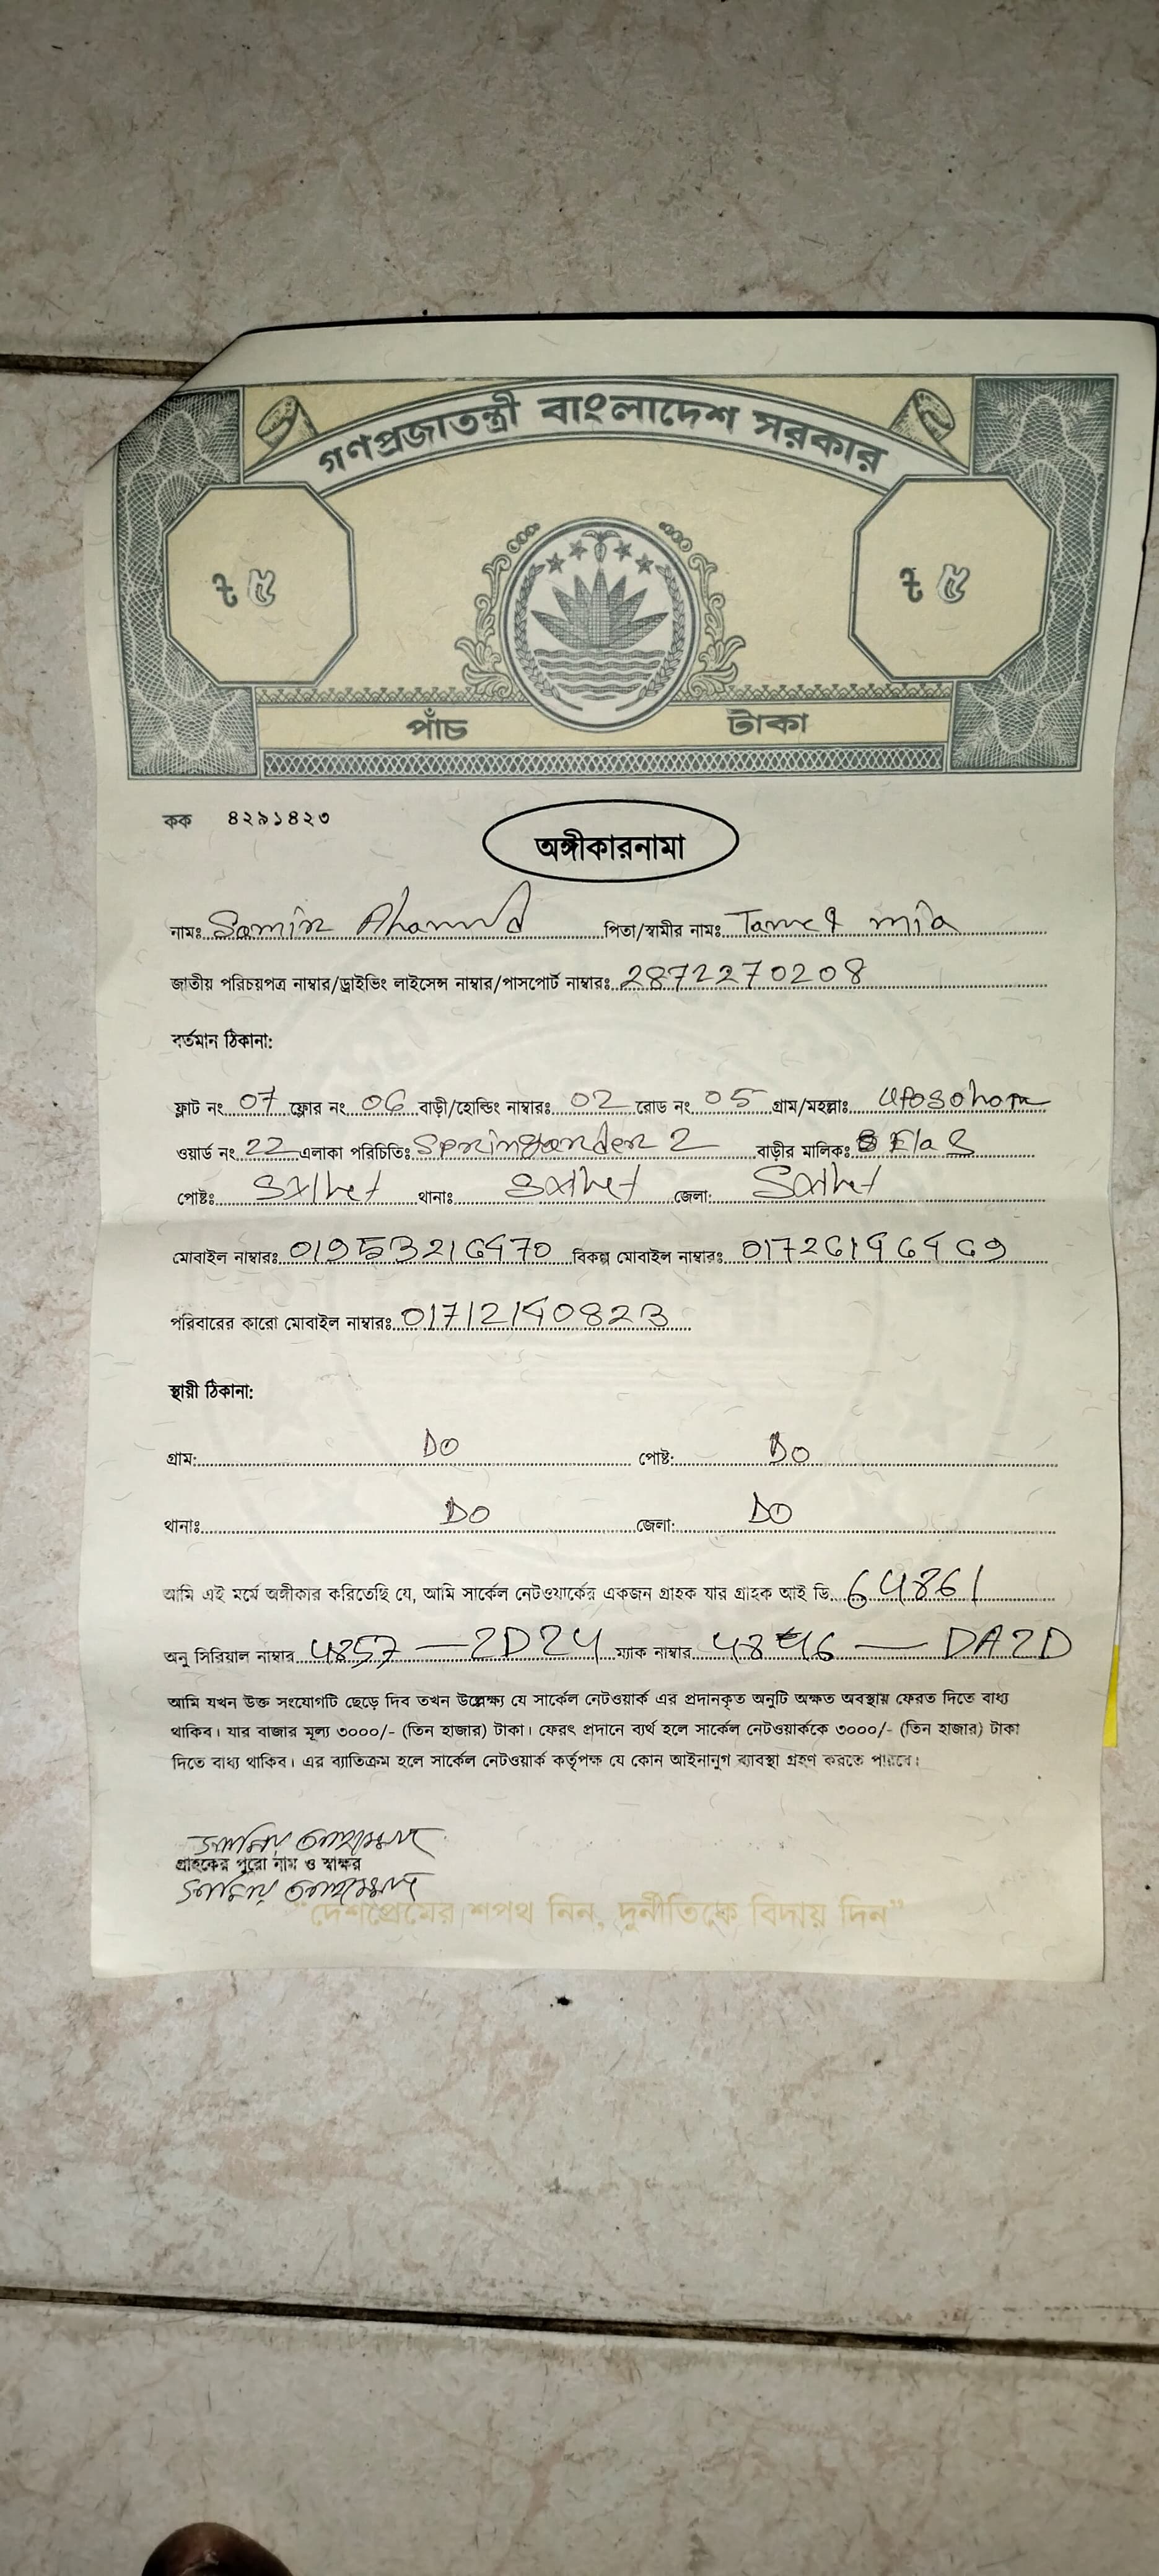 গণপ্রজাতন্ত্রী বাংলাদেশ সরকার
৳ ৫ ৳ ৫
পাঁচ টাকা
কক ৪২৯১৪২৩
অঙ্গীকারনামা
নামঃ Samir Ahamed পিতা/স্বামীর নামঃ mia
জাতীয় পরিচয়পত্র নাম্বার/ড্রাইভিং লাইসেন্স নাম্বার/পাসপোর্ট নাম্বারঃ 2872270208
বর্তমান ঠিকানা:
ফ্লাট নং 07 ফ্লোর নং 06 বাড়ী/হোল্ডিং নাম্বারঃ 02 রোড নং 05 গ্রাম/মহল্লাঃ Uposohor
ওয়ার্ড নং 22 এলাকা পরিচিতিঃ 2 বাড়ীর মালিকঃ
পোষ্টঃ Sylhet থানাঃ Sylhet জেলা: Sylhet
মোবাইল নাম্বারঃ বিকল্প মোবাইল নাম্বারঃ
পরিবারের কারো মোবাইল নাম্বারঃ
স্থায়ী ঠিকানা:
গ্রাম: DO পোষ্ট: DO
থানাঃ DO জেলা: DO
আমি এই মর্মে অঙ্গীকার করিতেছি যে, আমি সার্কেল নেটওয়ার্কের একজন গ্রাহক যার গ্রাহক আই ডি. 64861
অনু সিরিয়াল নাম্বার 4857 — 2D24 ম্যাক নাম্বার — DA2D
আমি যখন উক্ত সংযোগটি ছেড়ে দিব তখন উল্লেক্ষ্য যে সার্কেল নেটওয়ার্ক এর প্রদানকৃত অনুটি অক্ষত অবস্থায় ফেরত দিতে বাধ্য
থাকিব। যার বাজার মূল্য ৩০০০/- (তিন হাজার) টাকা। ফেরৎ প্রদানে ব্যর্থ হলে সার্কেল নেটওয়ার্ককে ৩০০০/- (তিন হাজার) টাকা
দিতে বাধ্য থাকিব। এর ব্যাতিক্রম হলে সার্কেল নেটওয়ার্ক কর্তৃপক্ষ যে কোন আইনানুগ ব্যাবস্থা গ্রহণ করতে পারবে।
সামির আহাম্মদ
গ্রাহকের পুরো নাম ও স্বাক্ষর
সামির আহাম্মদ
“দেশপ্রেমের শপথ নিন, দুর্নীতিকে বিদায় দিন”